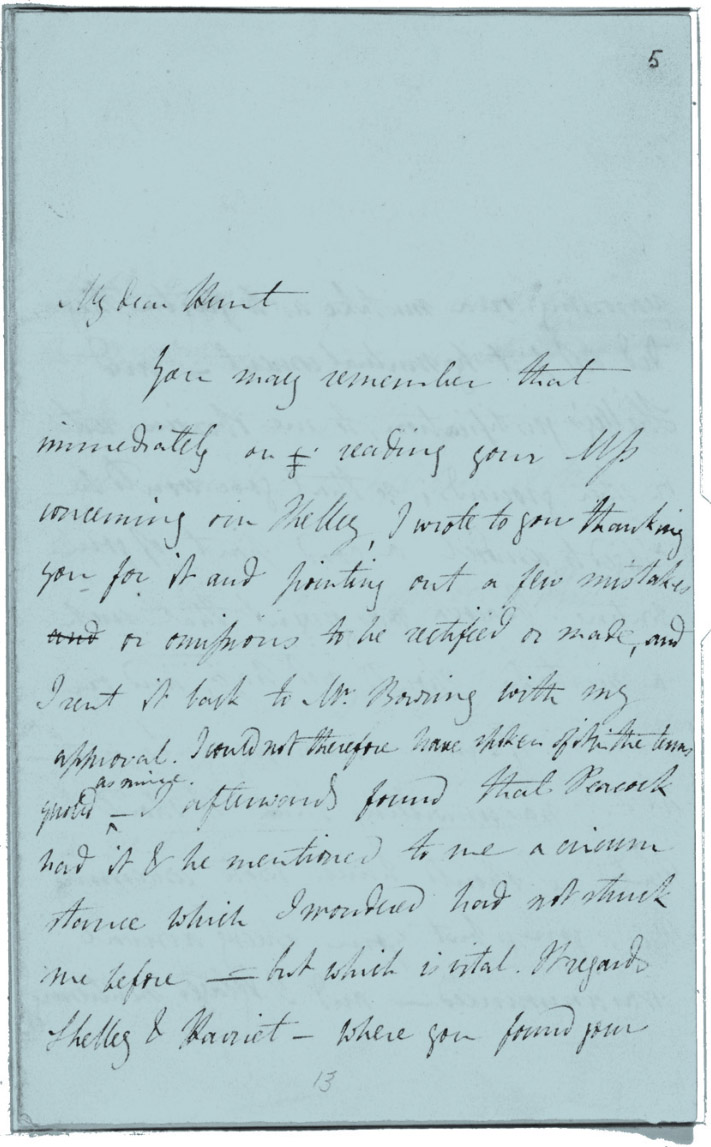 5
My dear Hunt
You may remember that
immediately on reading your MSS
concerning our Shelley, I wrote to you thanking
you for it and pointing out a few mistakes
and or omissions to be rectified or made, and
I sent it back to Mr. Bowring with my
approval. I could not therefore have spoken of it in the terms
as mine.
quoted — I afterwards found that Peacock
had it & he mentioned to me a circum
stance which I wondered had not struck
me before — but which is vital. It regards
Shelley & Harriet — where you found your
13